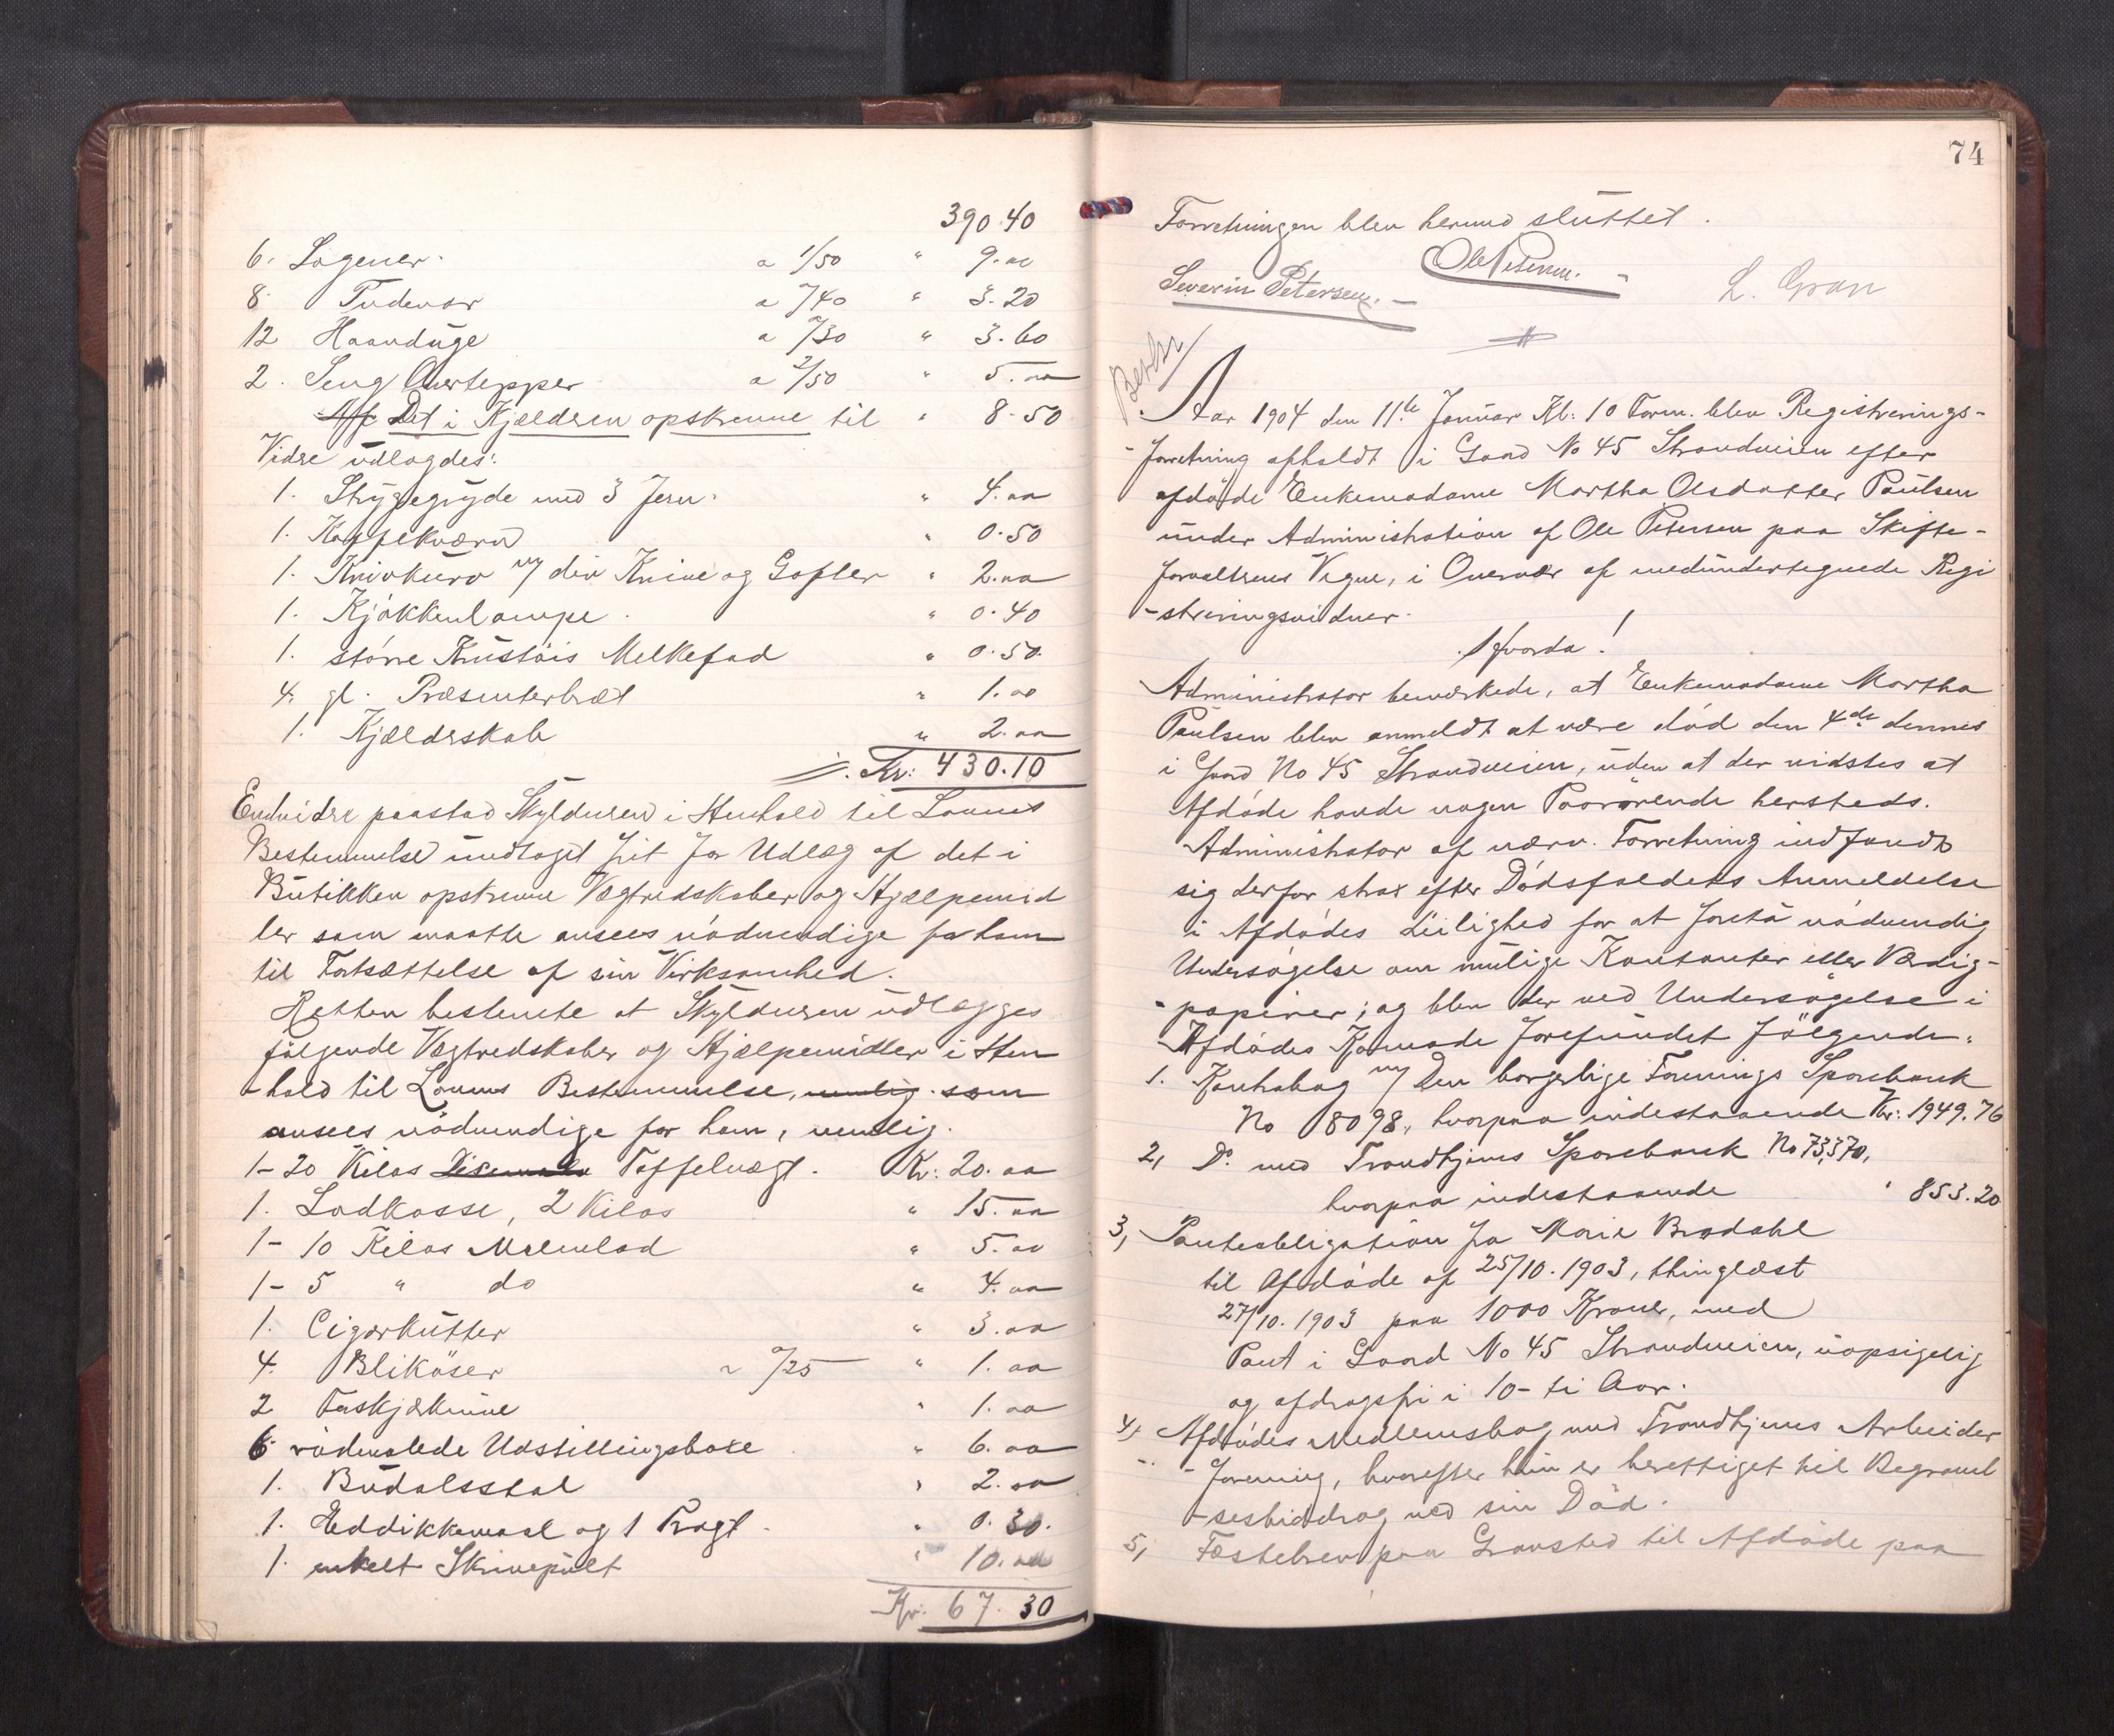 390.40
6. Lagener. a 1/50 " 9.00
8 Pudevar a 0/40 " 3.20
12 Haanduge a 0/30 " 3.60
2. Seng Overtepper a 2/50 " 5.00
Det i Kjælderen opskrevne til " 8.50
Vidre udlagdes:
1. Strygegryde med 3 Jern. " 4.00
1. Kaffekværn " 0.50
1. Knivkurv m/ div Knive og Gafler " 2.00
1. Kjøkkenlampe. " 0.40
1. större Krustöis Melkefad " 0.50.
4. gl. Præsenterbræt " 1.00
1. Kjælderskab " 2.00
Kr: 430.10
Endvidre paastod Skyldneren i Henhold til Lovens
Bestemmelse undtaget frit for Udlæg af det i
Butikken opskrevne Vægtredskaber og Hjælpemid
ler som maatte ansees nödvendige for ham
til Fortsættelse af sin Virksomhed.
Retten bestemte at Skyldneren udlægges
følgende Vægtredskaber og Hjælpemidler i Hen
-hold til Lovens Bestemmelse, nemlig som
ansees nödvendige for ham, nemlig.
1- 20 Kilos Taffelvægt. Kr: 20.00
1. Lodkasse, 2 Kilos " 15.00
1- 10 Kilos Malmlod " 5.00
1- 5 " do " 4.00
1. Cigarkutter " 3.00
4. Blikøser a 0/25 " 1.00
2 " 1.00
6 rödmalede Udstillingsboxe " 6.00
1. " 2.00
1. Eddikkemaal og 1 Tragt. " 0.30.
1. enkelt Skrivepult " 10.00
Kr. 67.30
74
Forretningen blev hermed sluttet.
Ole Petersen.
Severin Petersen. L. Gran
Aar 1904 den 11te Januar Kl: 10 Form. blev Registrerings-
-forretning afholdt i Gaard No 45 Strandveien efter
afdøde Enkemadame Martha Olsdatter Paulsen
under Administration af Ole Petersen paa Skifte-
forvalterens Vegne, i Overvær af medundertegnede Regi
-streringsvidner.
Hvorda!
Administrator bemærkede, at Enkemadame Martha
Paulsen blev anmeldt at være død den 4de dennes
i Gaard No 45 Strandveien, uden at der vidstes at
Afdøde havde nogen Paarørende hersteds.
Administrator af nærv. Forretning indfandt
sig derfor strax efter Dødsfaldets Anmeldelse
i Afdødes Leilighed for at foreta nødvendig
Undersøgelse om mulige Kontanter eller Værdig-
-papirer; og blev der ved Undersøgelse i
Afdødes Komode forefundet følgende:
1. Kontrabog m/ Den borgerlige Forenings Sparebank
No 8098, hvorpaa indestaaende Kr: 1949.76
2, Do. med Trondhjems Sparebank No 73,370,
hvorpaa indestaaende " 853.20
3, Panteobligation fra Marie Brodahl
til Afdøde af 25/10. 1903, thinglæst
27/10. 1903 paa 1000 Kroner, med
Pant i Gaard No 45 Strandveien, uopsigelig
og afdragsfri i 10- ti Aar.
4, Afdødes Medlemsbog med Trondhjems Arbeider
-forening, hvorefter hun er berettiget til Begravel
-sesbidrag ved sin Død.
5, Fæstebrev paa Gravsted til Afdøde paa